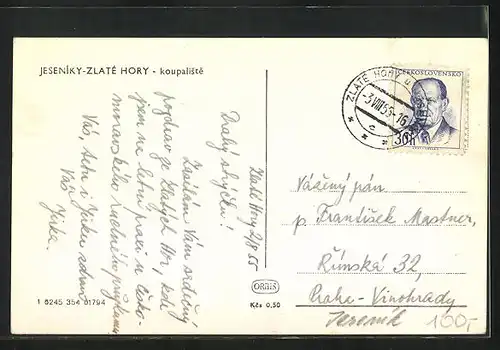 JESENÍKY-ZLATÉ HORY - koupaliště
Zlaté Hory 2/8 55
Drahý strýčku!
Zasílám Vám srdečný
pozdrav ze Zlatých Hor, kde
jsem na letní praxi
Vás, tetu i Jirku zdraví
Váš Jirka.
1 6245 356 01794
ORBIS
Kčs 0,50
ZLATÉ HORY
-3.VIII.55-16
c
ČESKOSLOVENSKO
30h
Vážený pán
p. František Mastner,
Římská 32,
Praha - Vinohrady
Jeseník
100,-